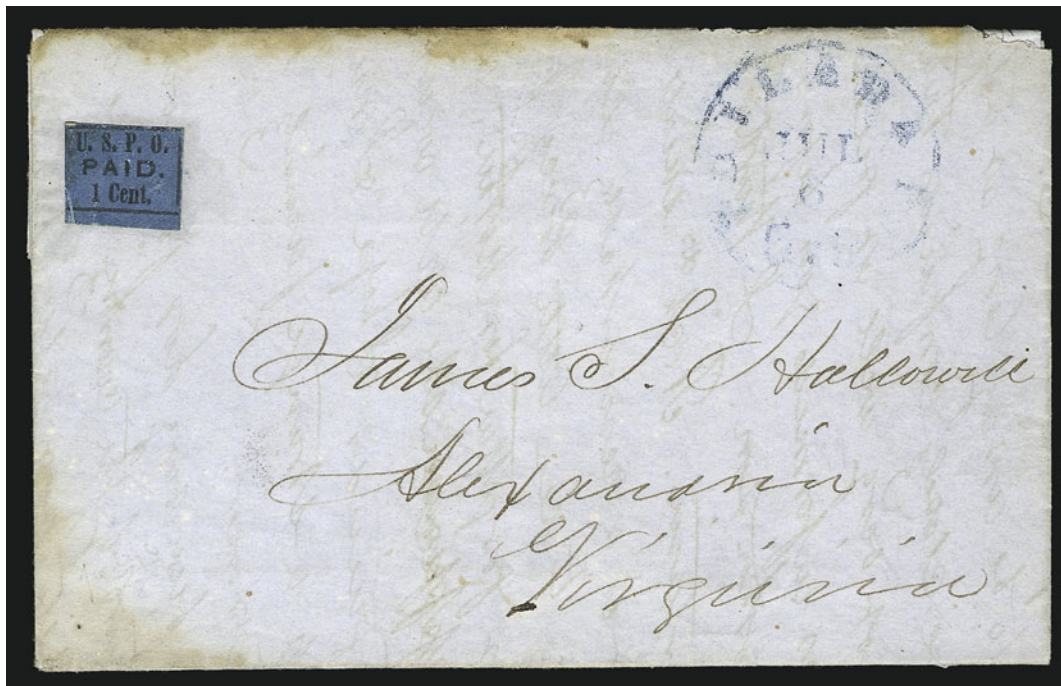 U. S. P. O.
PAID.
1 Cent.
PHILADA
JUL
6
James S. Hallowell
Alexandria
Virginia